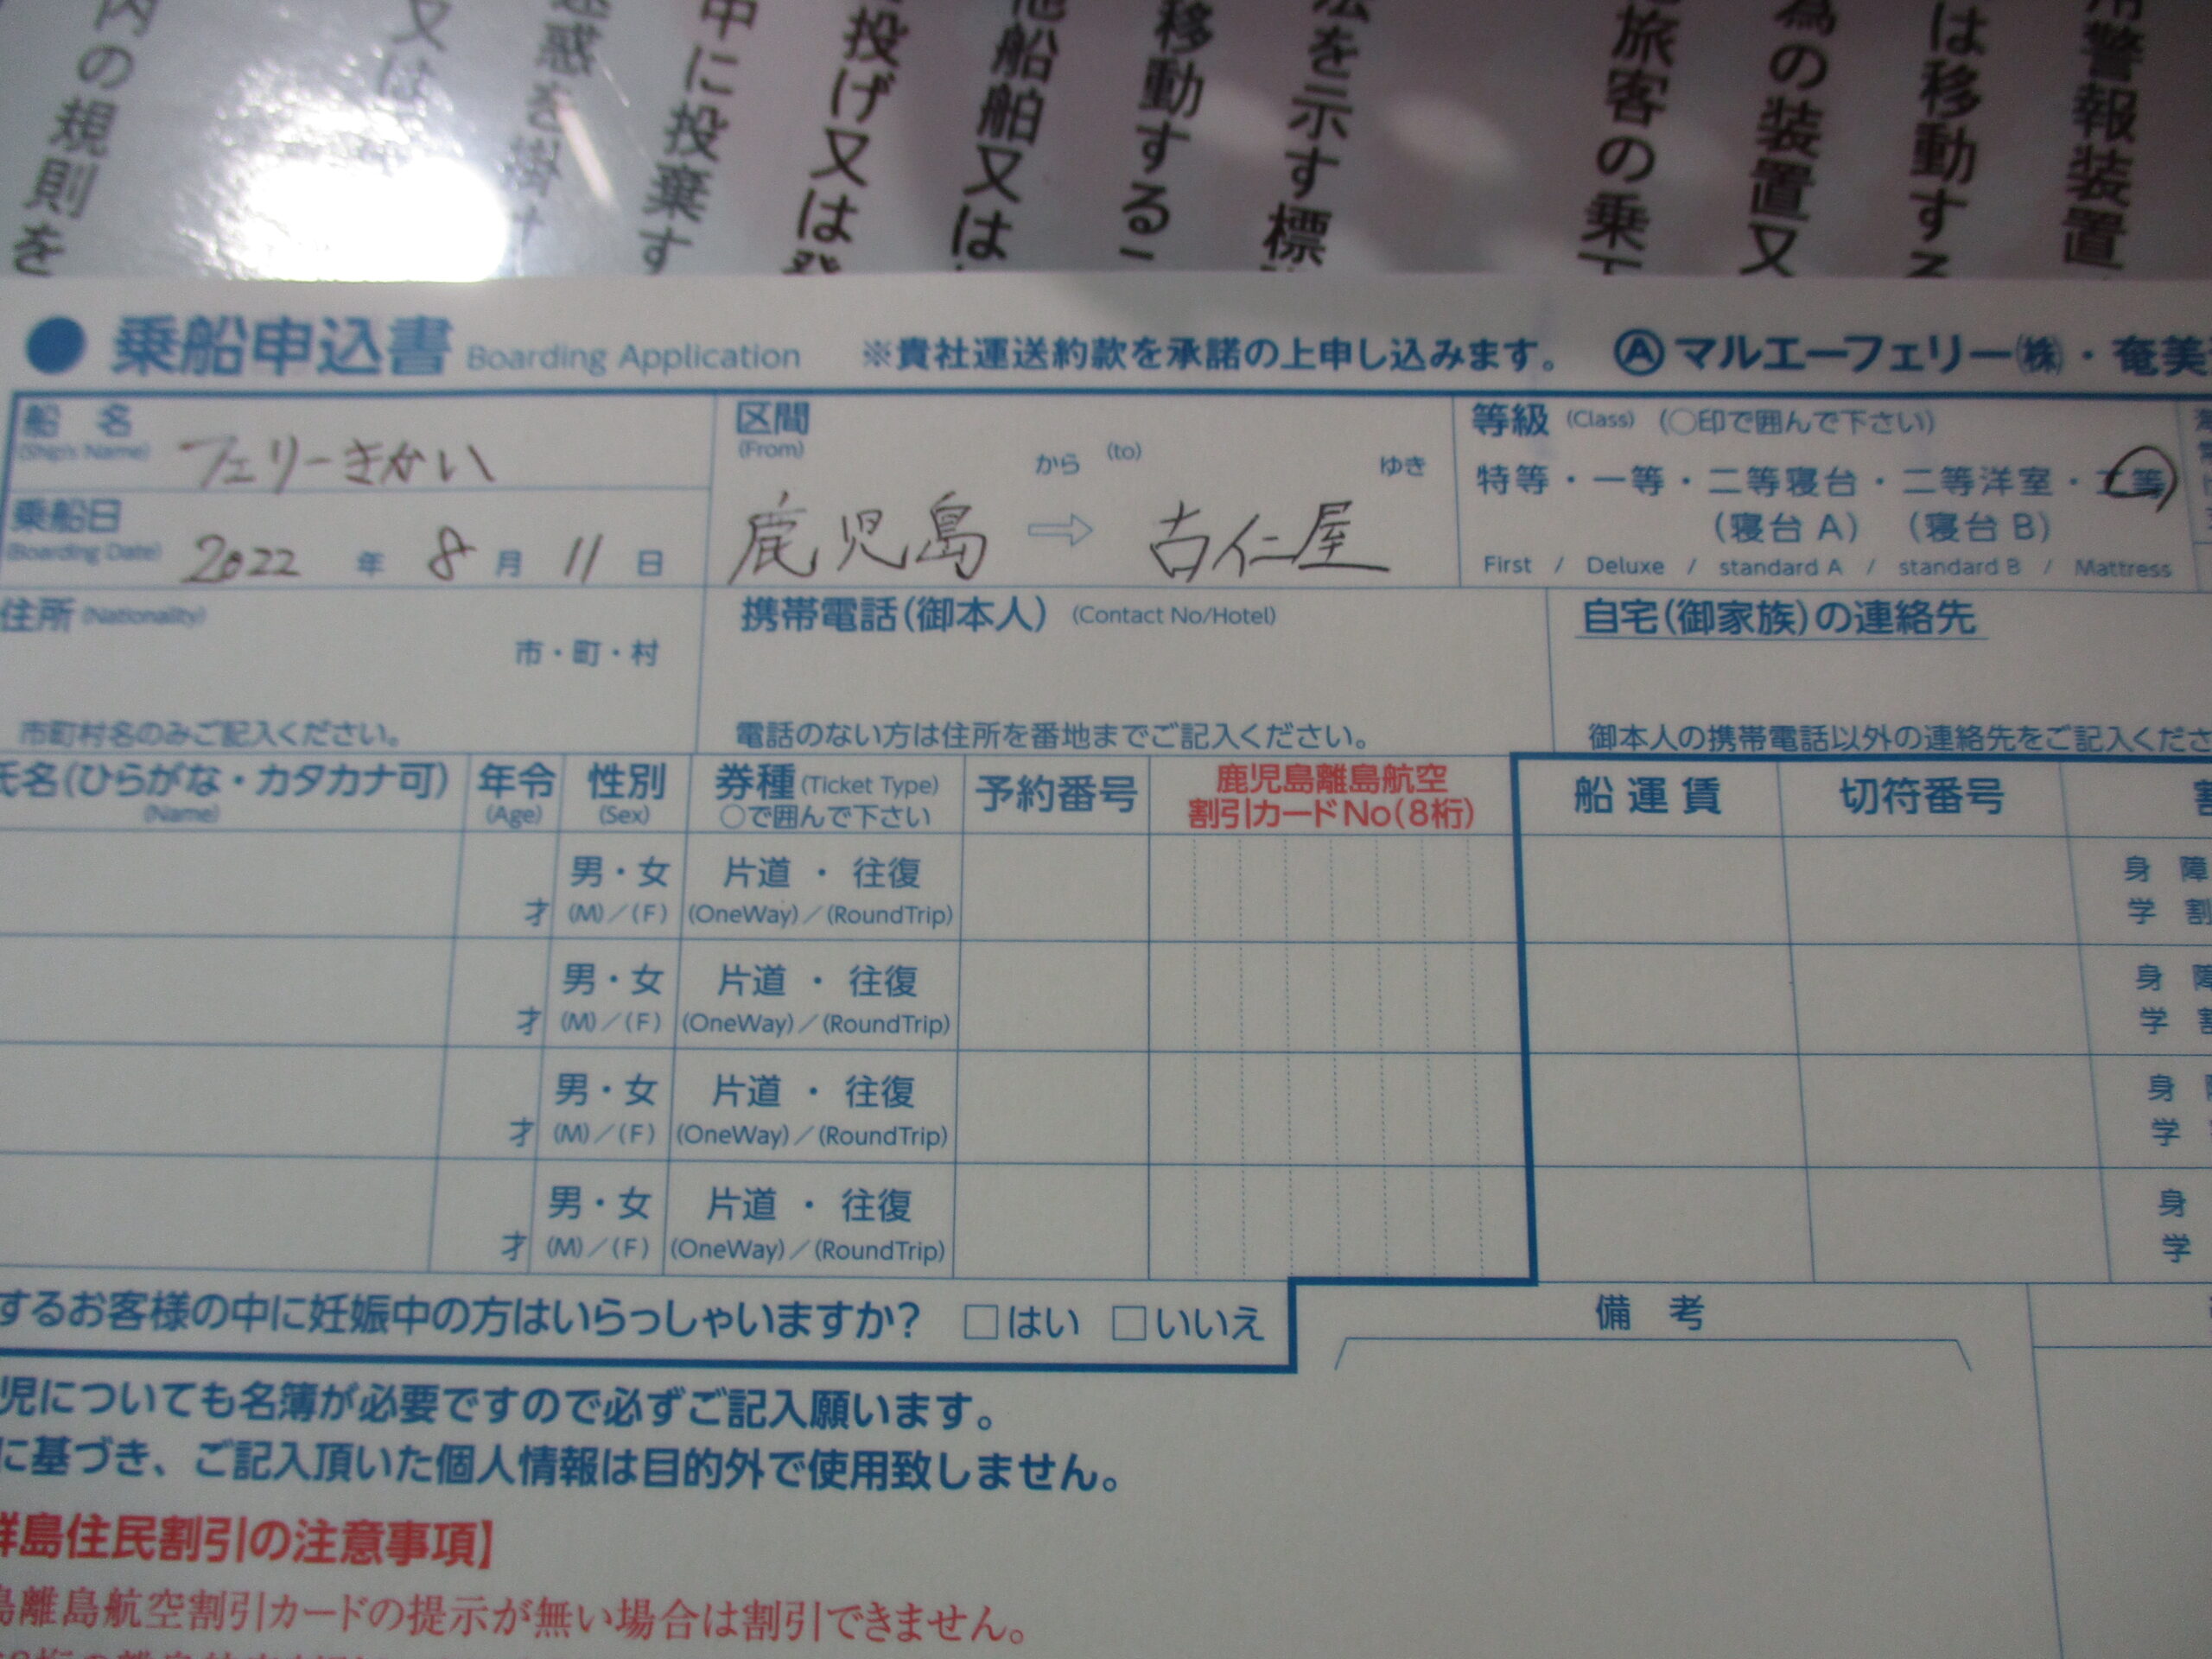 内の規則を
又は
迷惑を掛け
中に投棄す
投げ又は
他船舶又は
移動するこ
法を示す標
旅客の乗下
為の装置又
は移動する
用警報装置
●乗船申込書 Boarding Application ※貴社運送約款を承諾の上申し込みます。 Ⓐマルエーフェリー㈱・奄美
船名 (Ship's Name) フェリーきかい
乗船日 (Boarding Date) 2022年 8月 11日
区間 (From) から (to) ゆき
鹿児島 ⇨ 古仁屋
等級 (Class) (○印で囲んで下さい)
特等・一等・二等寝台・二等洋室・二等
(寝台A) (寝台B)
First / Deluxe / standard A / standard B / Mattress
住所 (Nationality)
市・町・村
市町村名のみご記入ください。
携帯電話(御本人) (Contact No/Hotel)
電話のない方は住所を番地までご記入ください。
自宅(御家族)の連絡先
御本人の携帯電話以外の連絡先をご記入くださ
氏名(ひらがな・カタカナ可) (Name)
年令 (Age)
性別 (Sex)
券種 (Ticket Type)
○で囲んで下さい
予約番号
鹿児島離島航空
割引カードNo(8桁)
船運賃
切符番号
割
男・女 片道・往復 身 障
才 (M)/(F) (OneWay)/(RoundTrip) 学 割
男・女 片道・往復 身 障
才 (M)/(F) (OneWay)/(RoundTrip) 学 割
男・女 片道・往復 身
才 (M)/(F) (OneWay)/(RoundTrip) 学
男・女 片道・往復 身
才 (M)/(F) (OneWay)/(RoundTrip) 学
するお客様の中に妊娠中の方はいらっしゃいますか? □はい □いいえ
備考
児についても名簿が必要ですので必ずご記入願います。
に基づき、ご記入頂いた個人情報は目的外で使用致しません。
群島住民割引の注意事項】
島離島航空割引カードの提示が無い場合は割引できません。